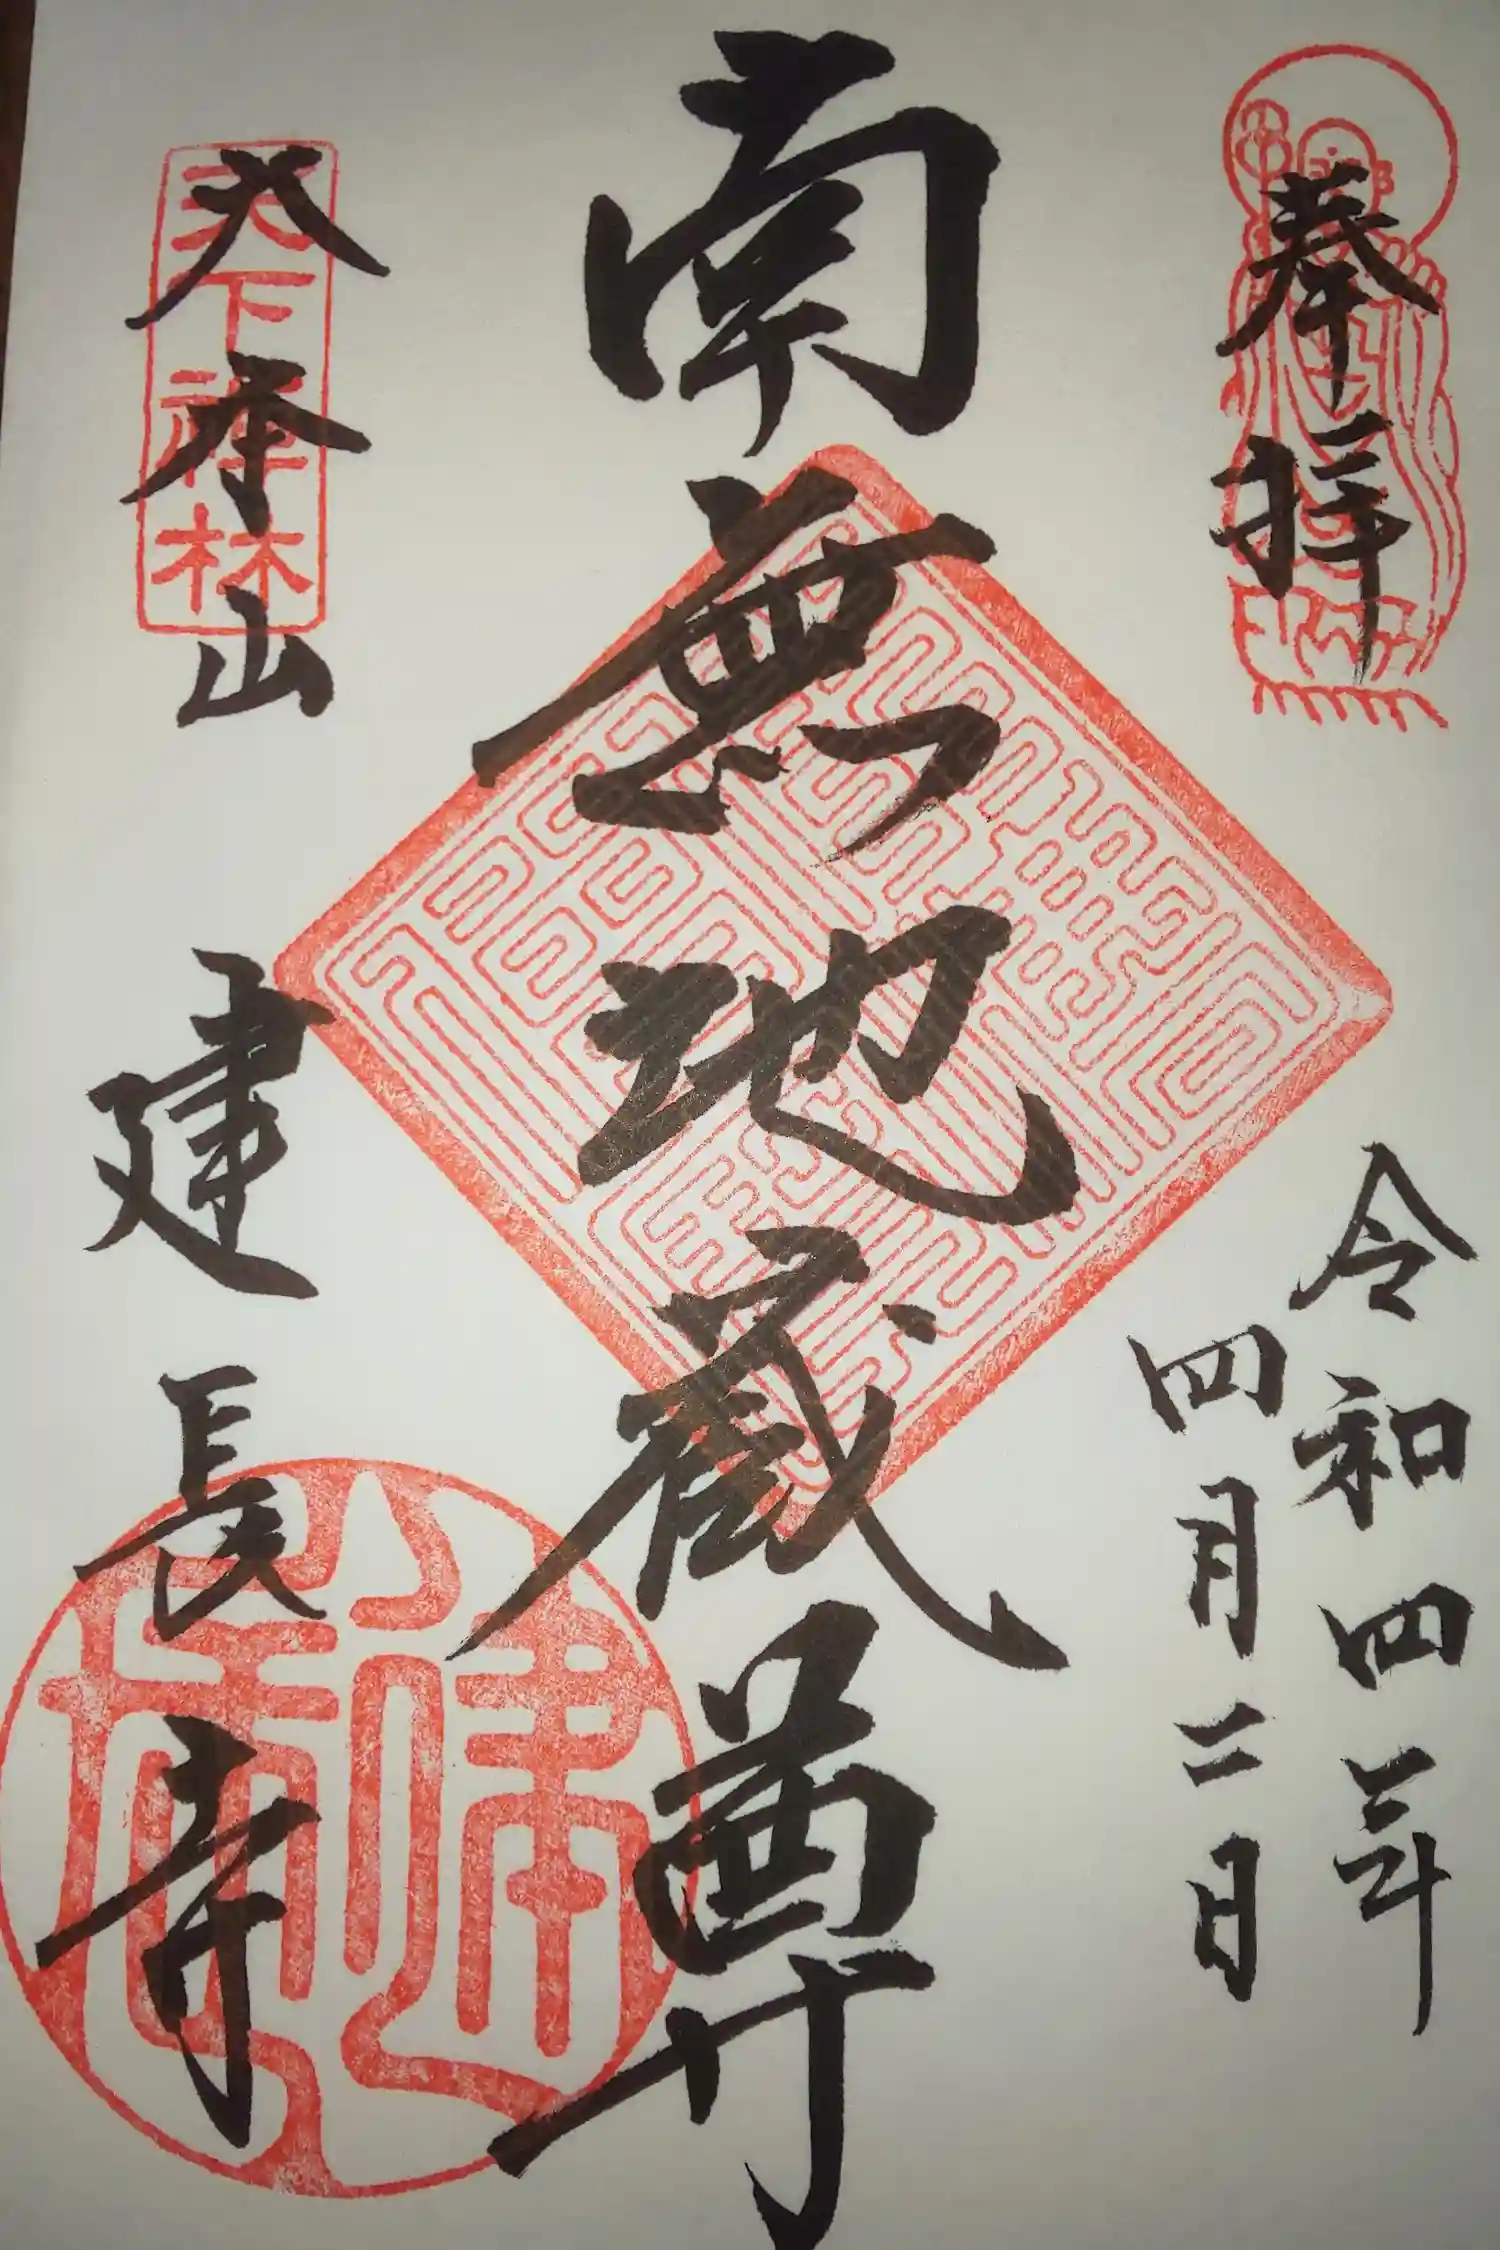 奉拝
令和四年
四月二日
南無地蔵尊
天下禅林
大本山 建長寺